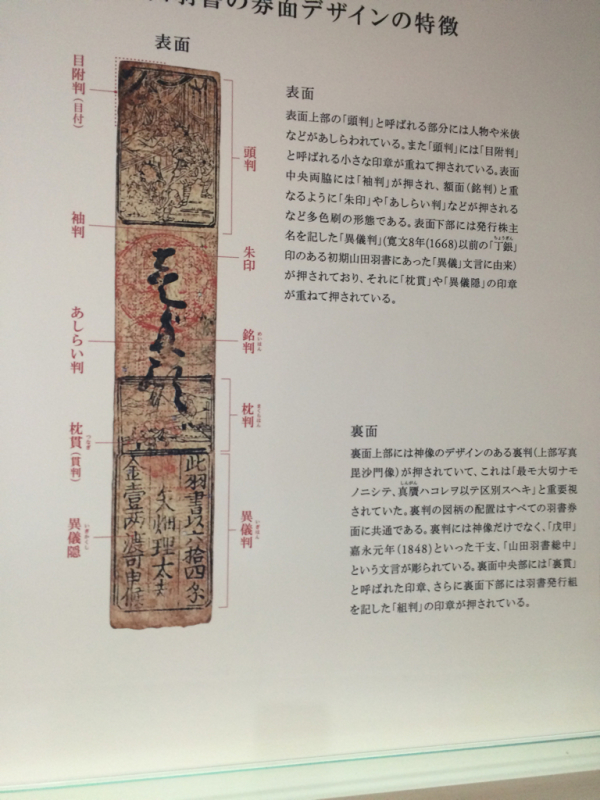 羽書の券面デザインの特徴
表面
目附判(目付)
頭判
袖判
朱印
あしらい判
銘判
めいはん
枕判
まくらはん
枕貫(貫判)
つなぎ
異儀判
いぎはん
異儀隠
いぎかくし
此羽書以六拾四匁
金壹両渡可申候
表面
表面上部の「頭判」と呼ばれる部分には人物や米俵
などがあしらわれている。また「頭判」には「目附判」
と呼ばれる小さな印章が重ねて押されている。表面
中央両脇には「袖判」が押され、額面(銘判)と重
なるように「朱印」や「あしらい判」などが押される
など多色刷の形態である。表面下部には発行株主
名を記した「異儀判」(寛文8年(1668)以前の「丁銀」
ちょうぎん
印のある初期山田羽書にあった「異儀」文言に由来)
が押されており、それに「枕貫」や「異儀隠」の印章
が重ねて押されている。
裏面
裏面上部には神像のデザインのある裏判(上部写真
毘沙門像)が押されていて、これは「最モ大切ナモ
ノニシテ、真贋ハコレヲ以テ区別スヘキ」と重要視
しんがん
されていた。裏判の図柄の配置はすべての羽書券
面に共通である。裏判には神像だけでなく、「戊申」
嘉永元年(1848)といった干支、「山田羽書総中」
という文言が彫られている。裏面中央部には「裏貫」
と呼ばれた印章、さらに裏面下部には羽書発行組
を記した「組判」の印章が押されている。